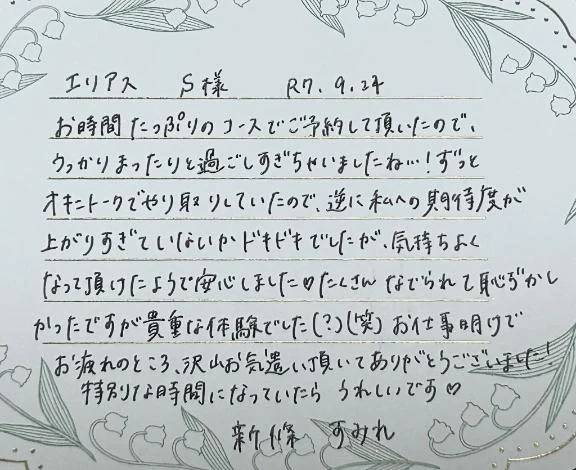 エリアス　S様　R7.9.24
お時間たっぷりのコースでご予約して頂いたので、
うっかりまったりと過ごしすぎちゃいましたね…！ずっと
オキニトークでやり取りしていたので、逆に私への期待度が
上がりすぎていないかドキドキでしたが、気持ちよく
なって頂けたようで安心しました♡たくさんなでられて恥ずかし
かったですが貴重な体験でした(?)(笑)お仕事明けで
お疲れのところ、沢山お気遣い頂いてありがとうございました！
特別な時間になっていたらうれしいです♡
新條　すみれ